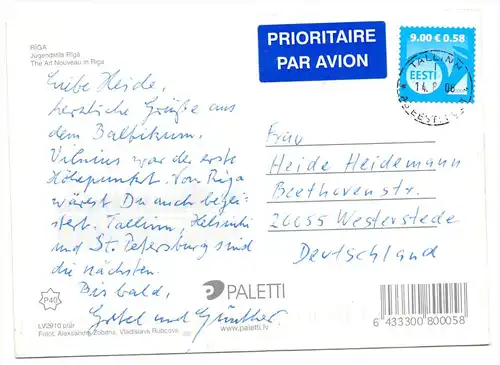 RĪGA
Jūgendstils Rīgā
The Art Nouveau in Riga
PRIORITAIRE
PAR AVION
9.00 € 0.58
EESTI
TALLINN
Liebe Heide,
herzliche Grüße aus
dem Baltikum.
Vilnius war der erste
Höhepunkt. Von Riga
wärest Du auch begei-
stert. Tallinn, Helsinki
und St. Petersburg sind
die nächsten.
Bis bald,
Gretel und Günther
Frau
Heide Heidemann
Beethovenstr.
26655 Westerstede
Deutschland
P40
LV2910
PALETTI
www.paletti.lv
6 433300 800058